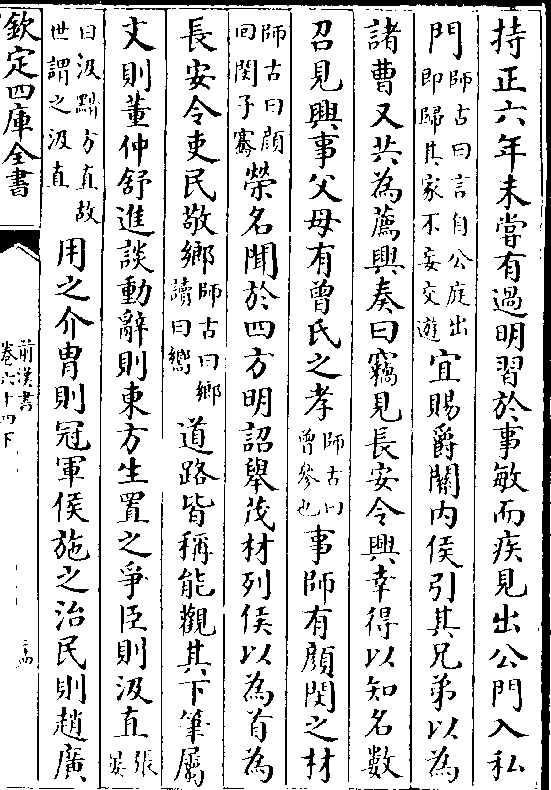 持正六年未嘗有過明習於事敏而疾見出公門入私
門師古曰言自公庭出即歸其家不妄交遊宜賜爵關内侯引其兄弟以為
諸曹又共為薦興奏曰竊見長安令興幸得以知名數
召見興事父母有曾氏之孝師古曰曾參也事師有顔閔之材
師古曰顔回閔子騫榮名聞於四方明詔舉茂材列侯以為首為
長安令吏民敬鄉師古曰鄉讀曰嚮道路皆稱能觀其下筆屬
文則董仲舒進談動辭則東方生置之爭臣則汲直張晏
曰汲黯方直故世謂之汲直用之介胄則冠軍侯施之治民則趙廣
欽定四庫全書
前漢書
卷六十四下
二十四